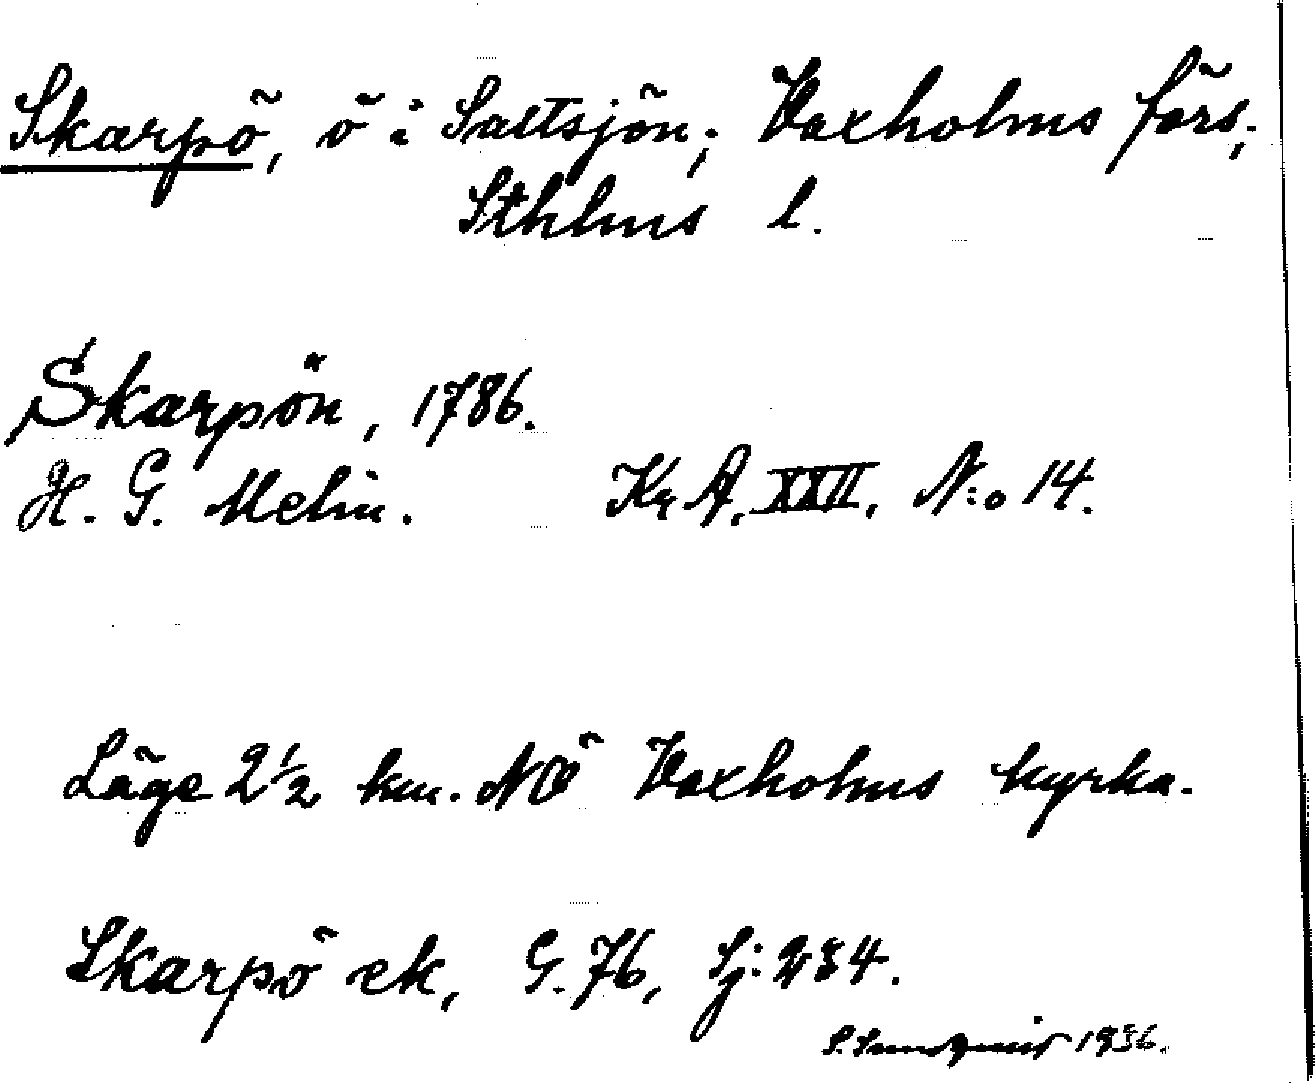 Skarpö, ö i Saltsjön; Vaxholms förs,
Sthlms l.
Skarpön, 1786.
H. G. Melin. Kr A, XXII, N:o 14.
Läge 2½ km. NÖ Vaxholms kyrka.
Skarpö ek, G. 76, Sj: 234.
S. Sundqvist 1936.